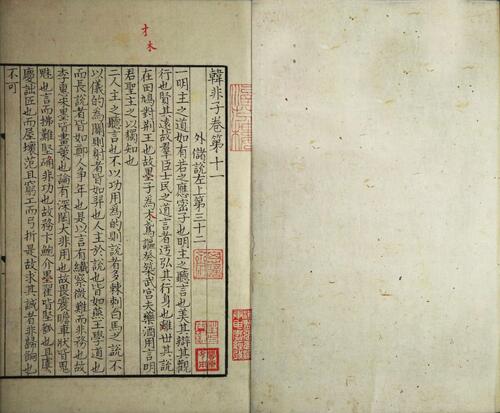 韓非子卷第十一
外儲說左上第三十二
一明主之道如有若之應宓子也明主之聽言也美其辯其觀
行也賢其遠故羣臣士民之道言者迂弘其行身也離世其說
在田鳩對荊王也故墨子為木鳶謳癸築武宮夫藥酒用言明
君聖主之以獨知也
二人主之聽言也不以功用為的則說者多棘刺白馬之說不
以儀的為關則射者皆如羿也人主於說也皆如燕王學道也
而長說者皆如鄭人爭年也是以言有纖察微難而非務也故
李惠宋墨皆畫策也論有深閎大非用也故畏震瞻車狀皆鬼
魅也言而拂難堅确非功也故務卞鮑介墨翟皆堅瓠也且虞
慶詘匠也而屋壞范且窮工而弓折是故求其誠者非歸餉也
不可